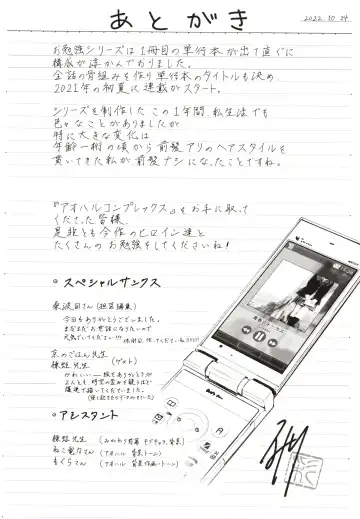 あとがき
2022.10.04
お勉強シリーズは1冊目の単行本が出て直ぐに
構想が浮かんでおりました。
全話の骨組みを作り単行本のタイトルも決め、
2021年の初夏に連載がスタート。
シリーズを制作したこの1年間、私生活でも
色々なことがありましたが
特に大きな変化は
年齢一桁の頃から前髪アリのヘアスタイルを
貫いてきた私が前髪ナシになったことですね。
『アオハルコンプレックス』をお手に取って
くださった皆様、
是非とも今作のヒロイン達と
たくさんのお勉強をしてくださいね!
スペシャルサンクス
さん(担当編集)
今回もありがとうございました。
まだまだお世話になりたいので
元気でいてください!!!
京のごはん先生
先生
(ゲスト)
かわいい
アシスタント
先生
さん(アオハル 背景・トーン)
まくらさん(アオハル 背景作画・トーン)